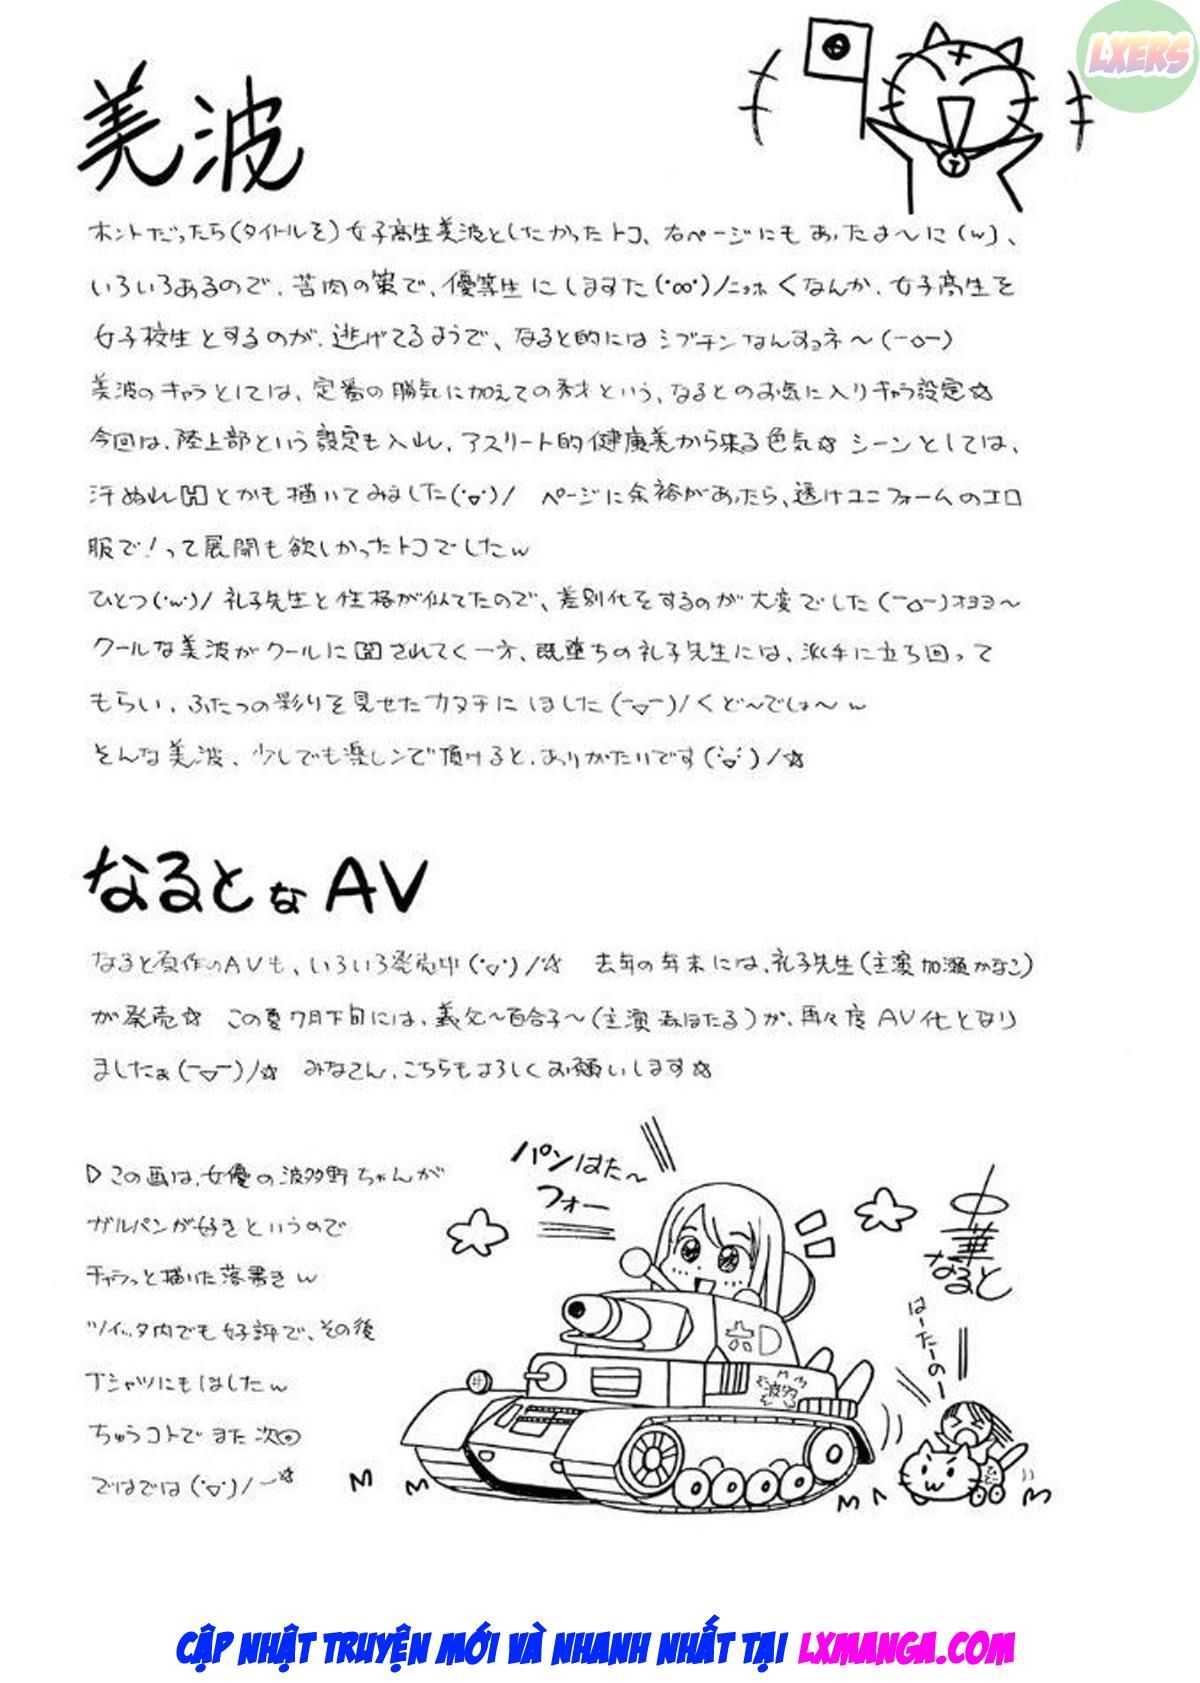 LXERS
美波
ホントだったら(タイトルを)女子高生美波としたかったトコ、右ページにもあったよ～に(w)、
いろいろあるので、苦肉の策で、優等生にしますた(･∞･)ﾉﾆｯﾎ くなんか、女子高生を
女子校生とするのが、逃げてるようで、なると的にはシブチンなんすョネ～(ーoー)
美波のキャラとしては、定番の勝気に加えての秀才という、なるとのお気に入りキャラ設定☆
今回は、陸上部という設定も入れ、アスリート的健康美から来る色気☆ シーンとしては、
汗ぬれ 図とかも描いてみました(･▽･)/ ページに余裕があったら、透けユニフォームのエロ
服で!って展開も欲しかったトコでしたw
ひとつ(･w･)/ 礼子先生と性格が似てたので、差別化をするのが大変でした(ー△ー)ｵﾖﾖ～
クールな美波がクールに されてく一方、既堕ちの礼子先生には、派手に立ち回って
もらい、ふたつの彩りを見せたカタチにしました(ー▽ー)/くど～でしょ～w
そんな美波、少しでも楽しンで頂けると、ありがたいです(･▽･)/☆
なるとなAV
なると原作のAVも、いろいろ発売中(･▽･)/☆ 去年の年末には、礼子先生(主演 加瀬かなこ)
が発売☆ この夏7月下旬には、義父～百合子～(主演 森ほたる)が、再々度AV化となり
ましたぁ(ー▽ー)/☆ みなさん、こちらもよろしくお願いします☆
▷この画は、女優の波多野ちゃんが
ガルパンが好きというので
チャラっと描いた落書きw
ツイッタ内でも好評で、その後
Tシャツにもしましたw
ちゅうコトでまた次回
ではでは(･▽･)/ー☆
パンはた～
フォー
六D
波多
中華なると
はーたーのー
CẬP NHẬT TRUYỆN MỚI VÀ NHANH NHẤT TẠI LXMANGA.COM